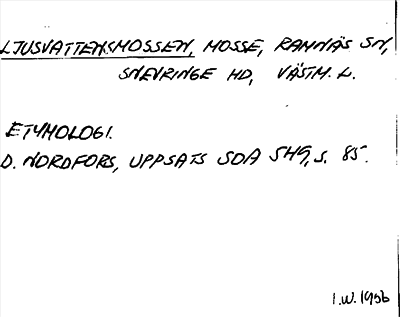 LJUSVATTENSMOSSEN, MOSSE, RAMNÄS SN,
SNEVRINGE HD, VÄSTM. L.
ETYMOLOGI.
D. NORDFORS, UPPSATS SOA 549, S. 85.
I.W. 1956